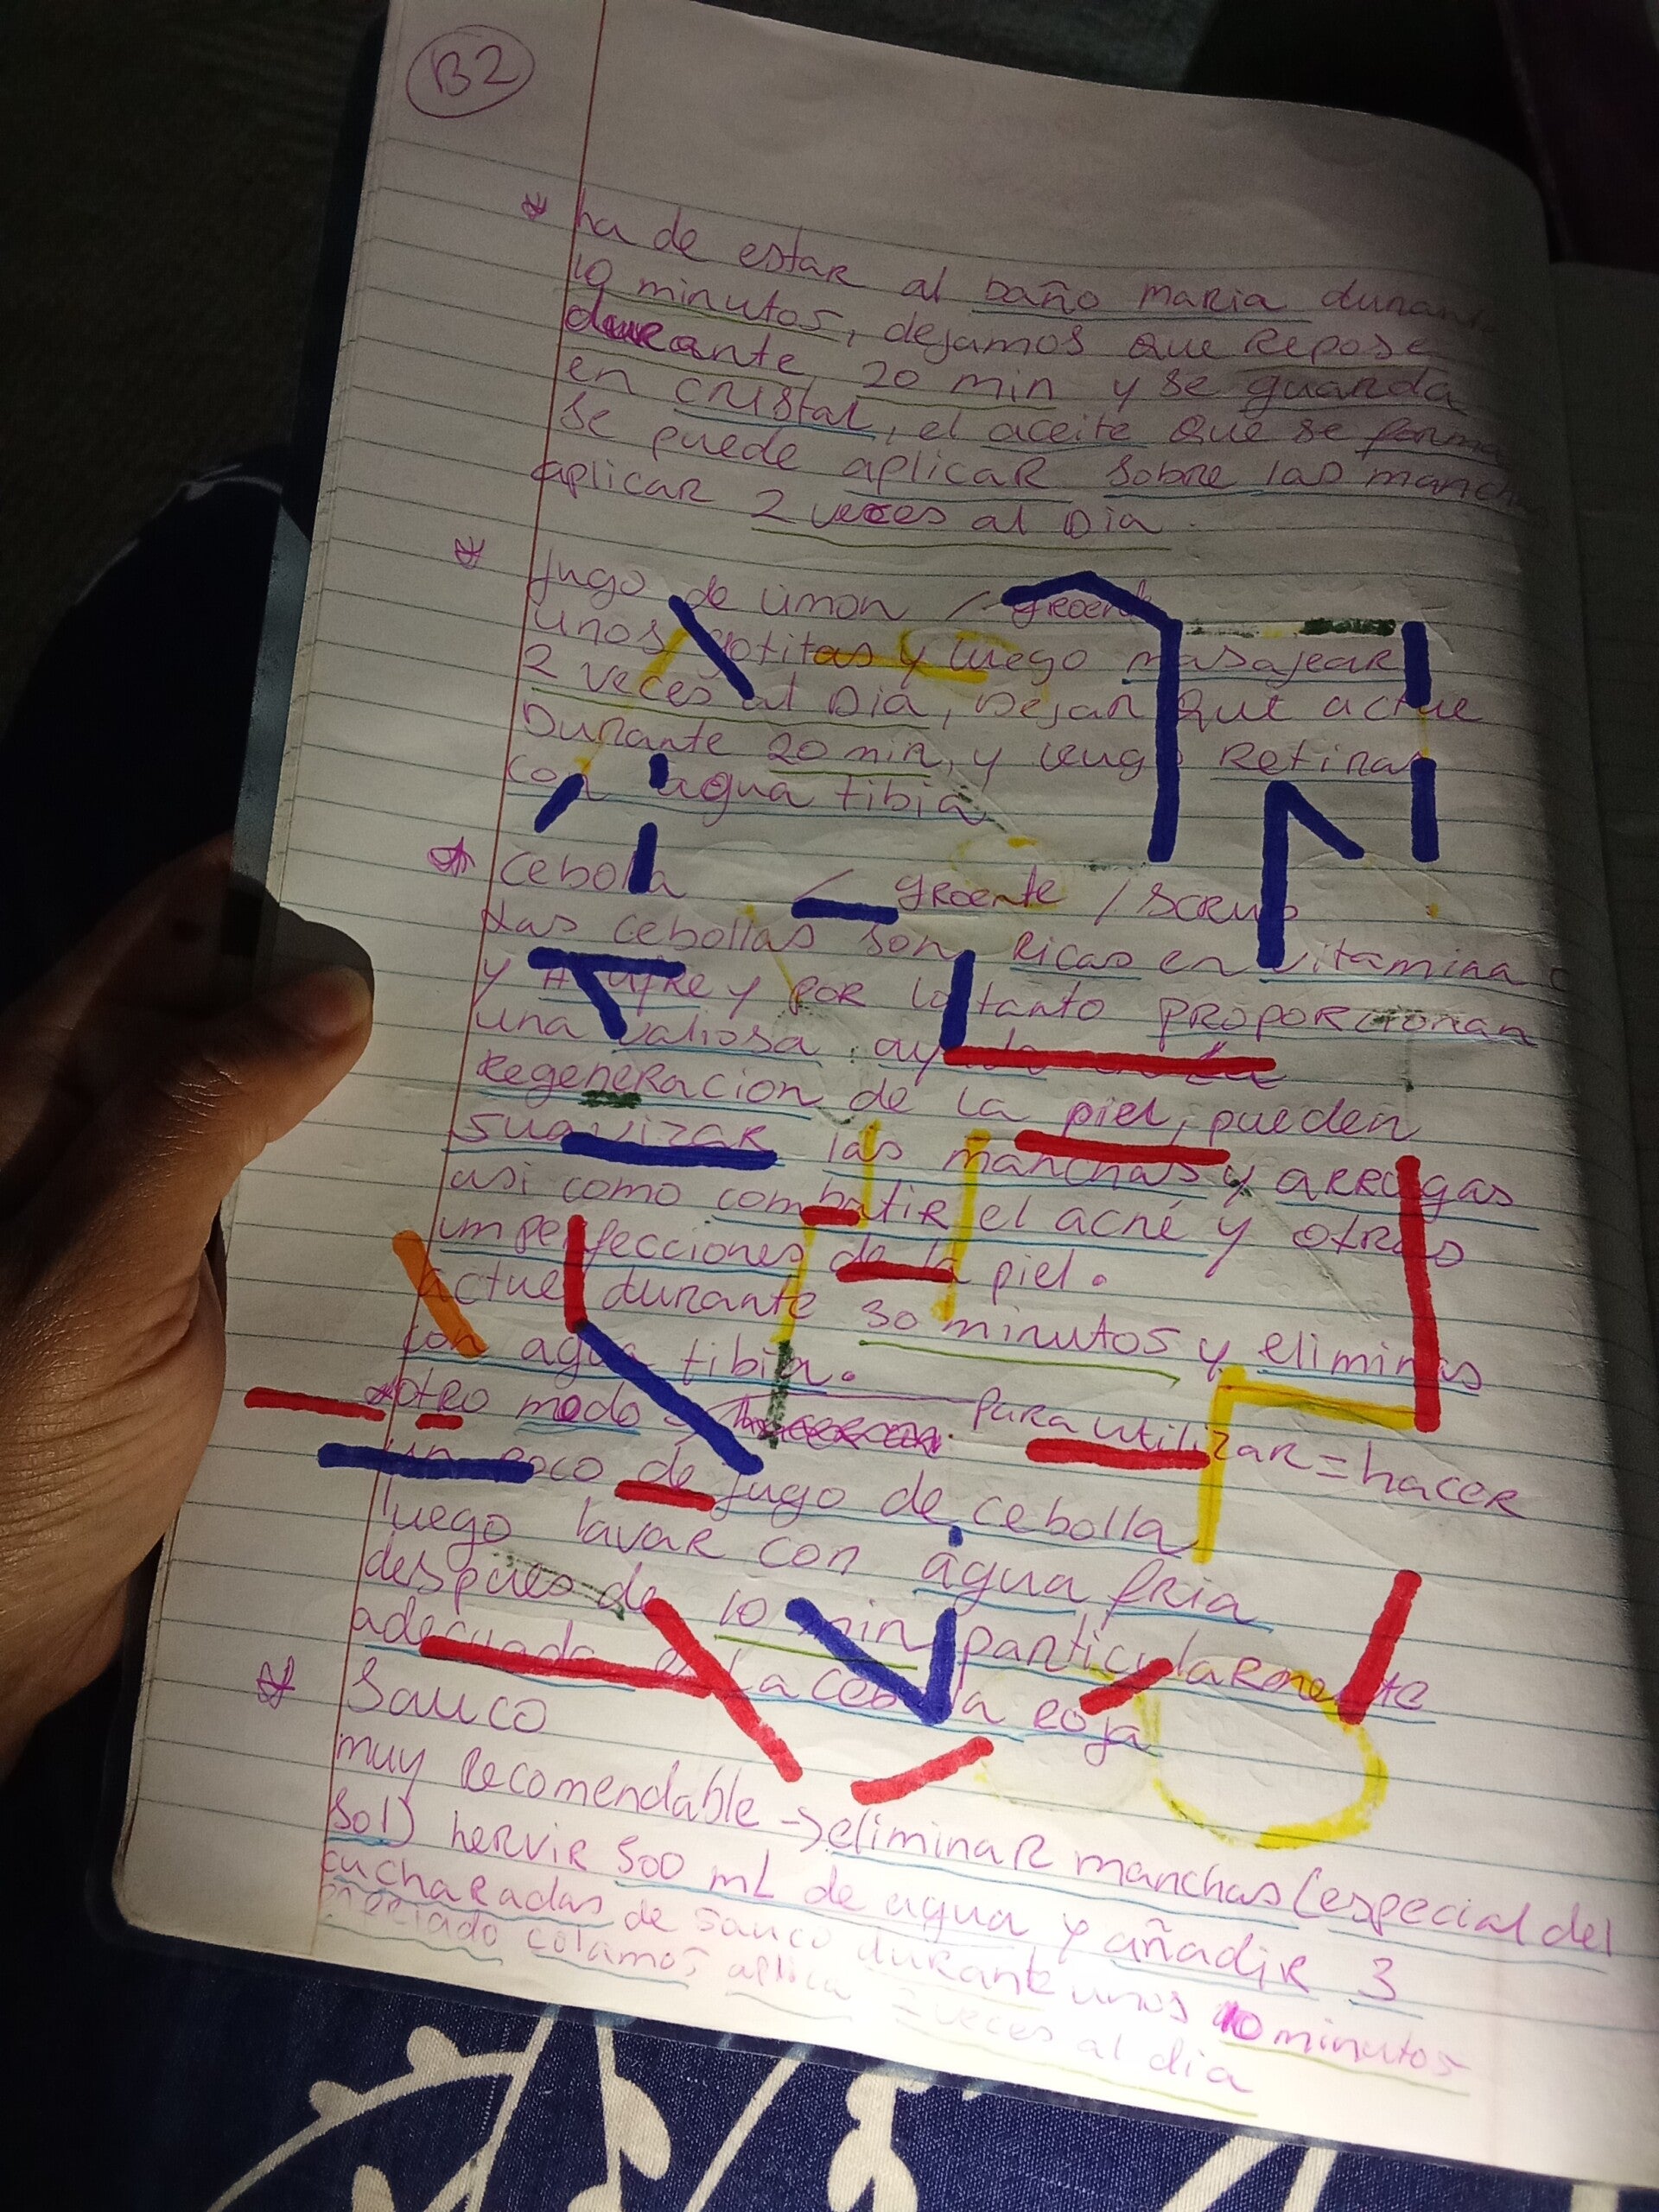 B2
* ha de estar al baño maria durante
10 minutos, dejamos que repose
durante 20 min y se guarda
en cristal, el aceite que se forma
se puede aplicar sobre las manch
aplicar 2 veces al Dia.
* Jugo de limon / groente
unos gotitas y luego masajear
2 veces al Dia, Dejar que actue
Durante 20 min, y luego Retirar
con agua tibia
* cebolla / groente / scrub
Las cebollas son ricas en vitamina C
y Azufre y por lo tanto proporcionan
una valiosa ayuda en la
Regeneracion de la piel, pueden
suavizar las manchas y arrugas
asi como combatir el acné y otras
imperfecciones de la piel.
actue durante 30 minutos y eliminas
con agua tibia.
* otro modo → para utilizar = hacer
un poco de jugo de cebolla
luego lavar con agua fria
despues de 10 min particularmente
adecuada es La cebolla roja
* Sauco
muy recomendable → eliminar manchas (especial del
sol) hervir 500 mL de agua y añadir 3
cucharadas de sauco durante unos 10 minutos
colamos aplica 2 veces al dia